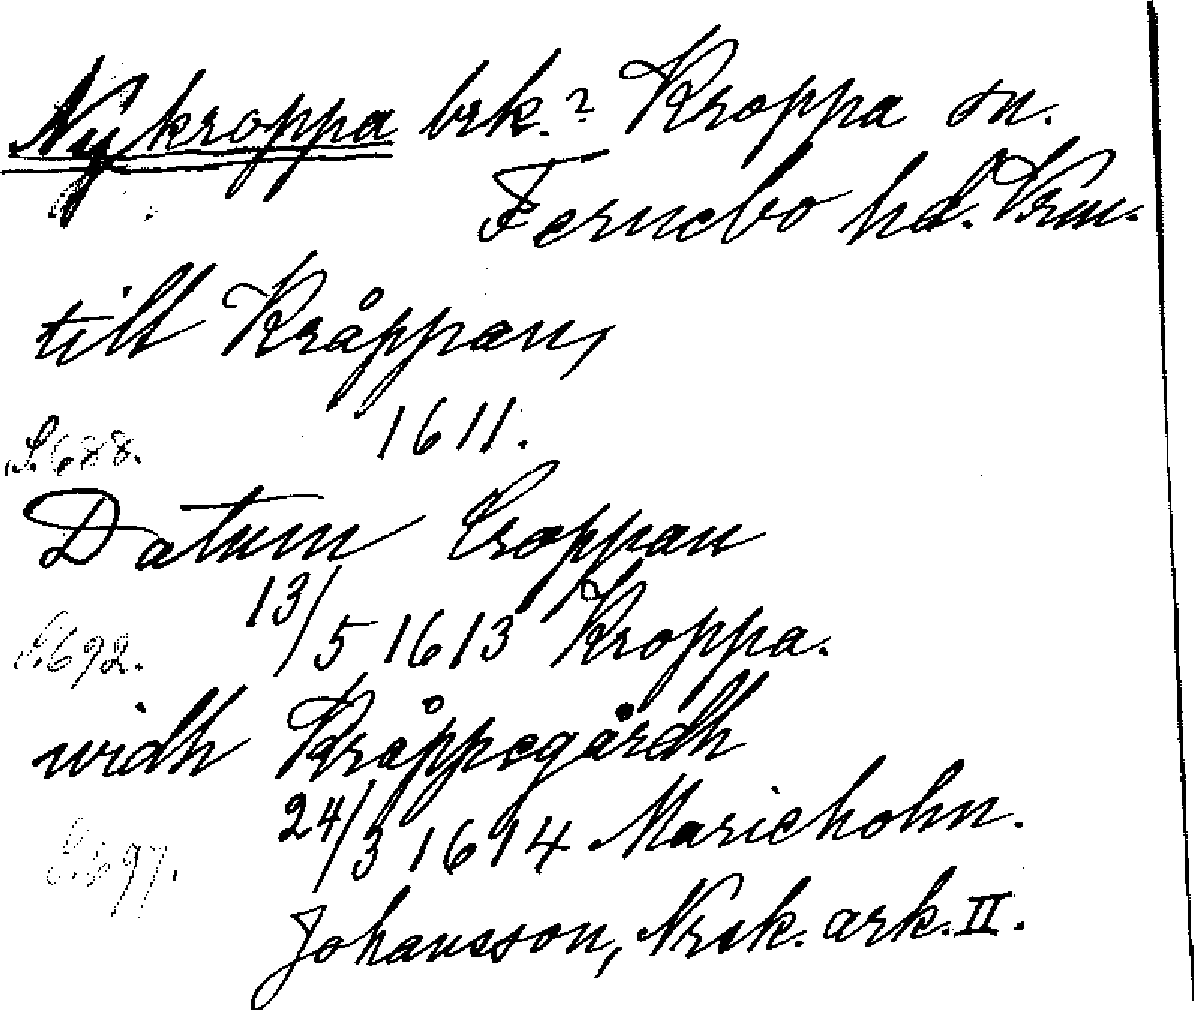 Nykroppa brk.? Kroppa sn.
Fernebo hd. Vrm.
till Kråppan,
1611.
S. 688.
Datum Croppan
13/5 1613 Kroppa.
S. 692.
widh Kråppegårdh
24/3 1614 Marieholm.
S. 697.
Johansson, Nrsk. ark. II.